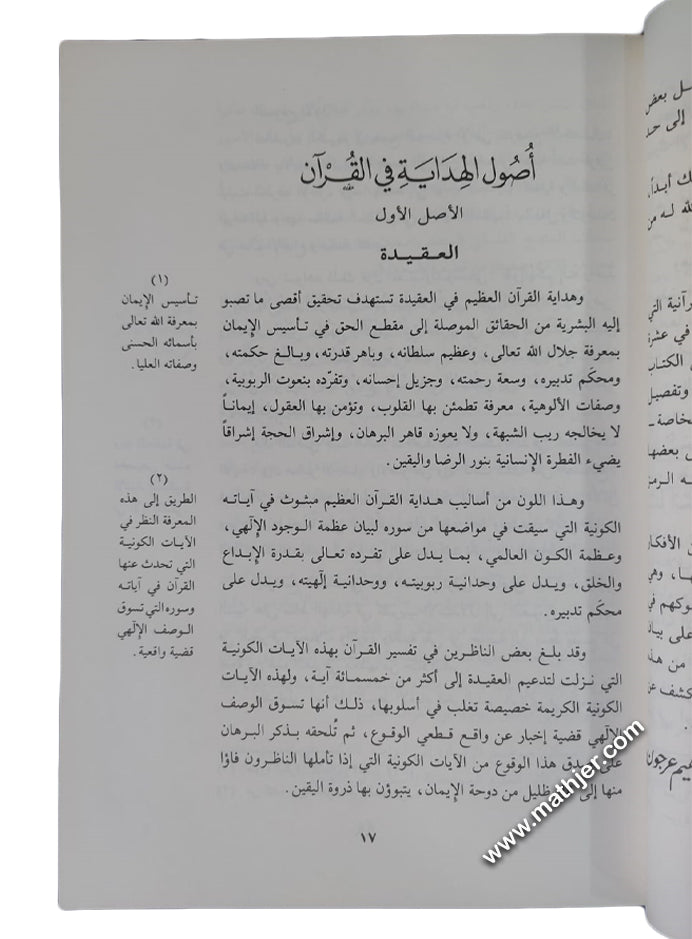 أُصُول الهِدَايَةِ فِي القُرْآن
الأصل الأول
العـقـيـدة
وهداية القرآن العظيم في العقيدة تستهدف تحقيق أقصى ما تصبو
إليه البشرية من الحقائق الموصلة إلى مقطع الحق في تأسيس الإيمان
بمعرفة جلال الله تعالى، وعظيم سلطانه، وباهر قدرته، وبـالـغ حكمته،
ومحكَم تدبيره، وسعة رحمته، وجزيل إحسانه، وتفرّده بنعوت الربوبية،
وصفات الألوهية، معرفة تطمئن بها القلوب، وتؤمن بها العقول، إيمـانـاً
لا يخالجه ريب الشبهة، ولا يعوزه قاهر البرهان، وإشراق الحجة إشراقاً
يضيء الفطرة الإنسانية بنور الرضا واليقين.
وهـذا اللون من أساليب هداية القرآن العظيم مبثوث في آيـاتـه
الكونية التي سيقت في مواضعها من سوره لبيان عظمة الوجود الإلٰهي،
وعـظـمـة الكون العالمي، بمـا يـدل على تفرده تعالى بقدرة الإبداع
والخلق، ويدل على وحدانية ربوبيتـه، ووحدانية إلٰهيته، ويدل على
محكَم تدبيره.
وقد بلغ بعض الناظرين في تفسير القرآن بهذه الآيـات الكونية
التي نزلت لتدعيم العقيدة إلى أكثر من خمسمائة آيـة، ولهذه الآيات
الكونية الكريمة خصيصة تغلب في أسلوبها، ذلـك أنها تسوق الوصف
الإلٰهي قضية إخبار عن واقع قطعي الوقوع، ثم تُلحقه بـذكر البـرهان
على صدق هذا الوقوع من الآيات الكونية التي إذا تأملها الناظـرون فاؤا
منها إلى ظليل من دوحة الإيمان، يتبوؤن بها ذروة اليقين.
(١)
تـأسيس الإيمان
بمعرفة الله تعالى
بأسمائه الحسنى
وصفاته العليا.
(٢)
الطريق إلى هذه
المعرفة النظر في
الآيات الكونية
التي تحدث عنها
القرآن في آياتـه
وسوره التي تسوق
الوصف الإلٰهي
قضية واقعية.
١٧
ـل بعض
إلى حد
ك أبداً،
لله لـه من
رآنية التي
في عشرة
الكتاب
وتفصيل
لخاصة ـ
بعضها
ـه الرمز
الأفكار
ـها، وهي
ـلوكهم في
على بيان
من هذه
كشف عن
ـيم عرجون
www.mathjer.com